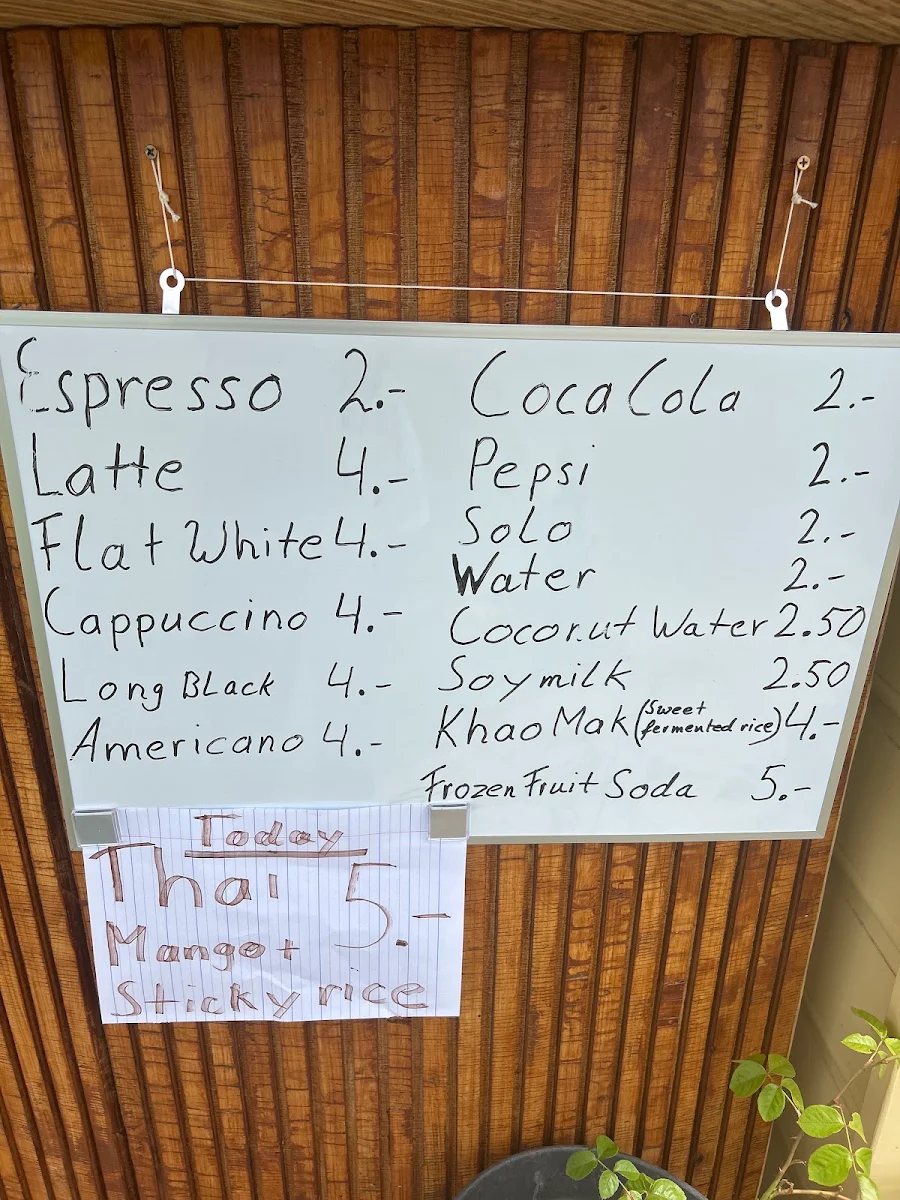 Espresso 2.-
Latte 4.-
Flat White 4.-
Cappuccino 4.-
Long Black 4.-
Americano 4.-
Coca Cola 2.-
Pepsi 2.-
Solo 2.-
Water 2.-
Coconut Water 2.50
Soymilk 2.50
Khao Mak (Sweet fermented rice) 4.-
Frozen Fruit Soda 5.-
Today
Thai 5.-
Mango +
Sticky rice